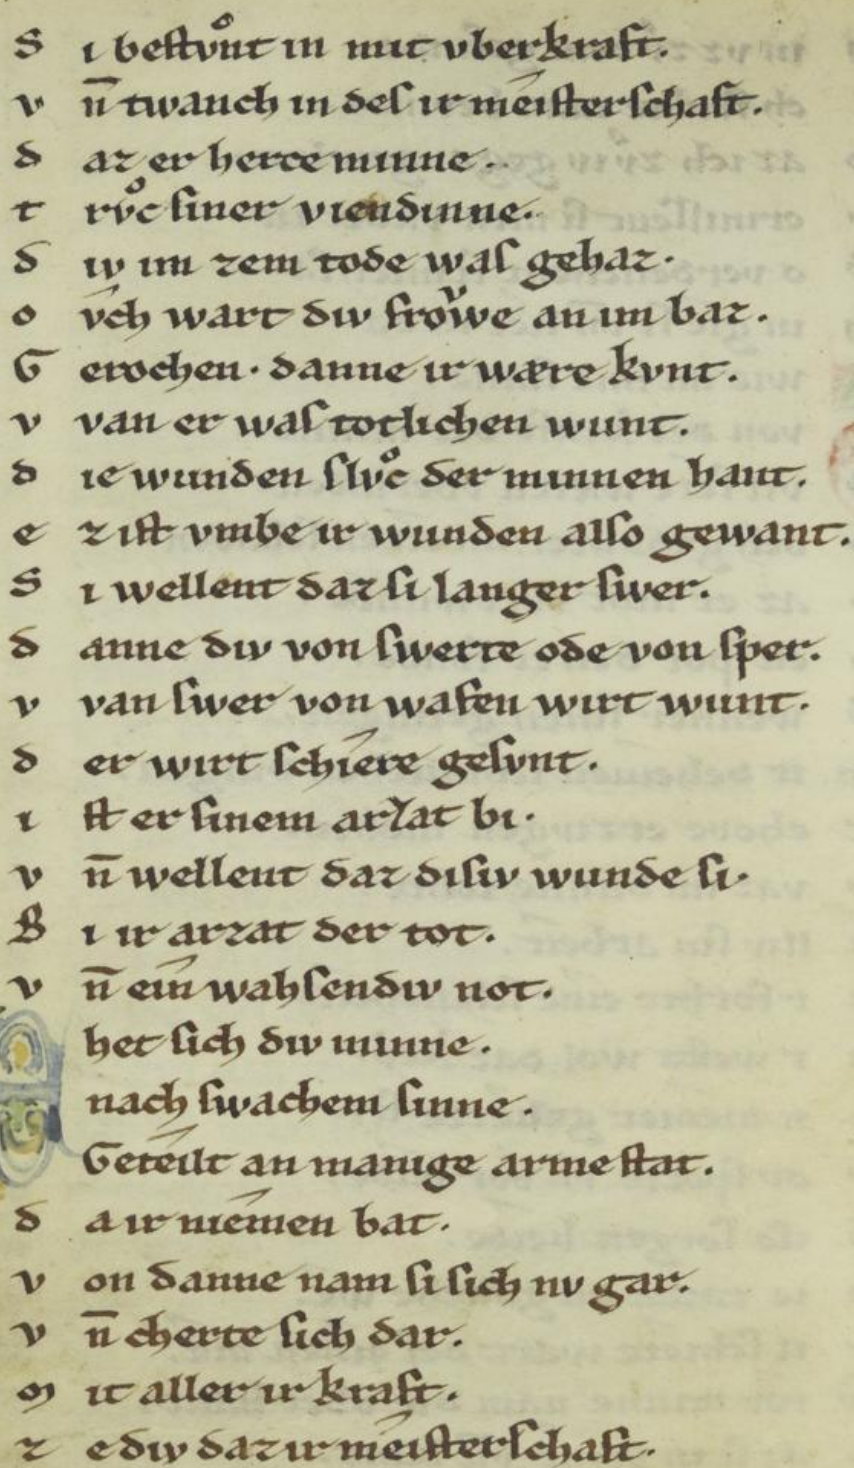 S i beſtvͦnt in mit vberkraft.
v n̄ twanch in deſ ir meiſterſchaft.
d az er herce minne.
t rvͦc ſiner viendinne.
d iv im zem tode waſ gehaz.
o vch wart div froͮwe an im baz.
G erochen. danne ir wære kvnt.
v van er waſ totlichen wunt.
d ie wunden ſlvͦc der minnen hant.
e z iſt vmbe ir wunden alſo gewant.
S i wellent daz ſi langer ſwer.
d anne div von ſwerte ode von ſper.
v van ſwer von wafen wirt wunt.
d er wirt ſchiere geſvnt.
i ſt er ſinem arzat bi.
v n̄ wellent daz diſiv wunde ſi.
B i ir arzat der tot.
v n̄ ein wahſendiv not.
het ſich div minne.
nach ſwachem ſinne.
Geteilt an manige arme ſtat.
d a ir niemen bat.
v on danne nam ſi ſich nv gar.
v n̄ cherte ſich dar.
m it aller ir kraft.
z e div daz ir meiſterſchaft.